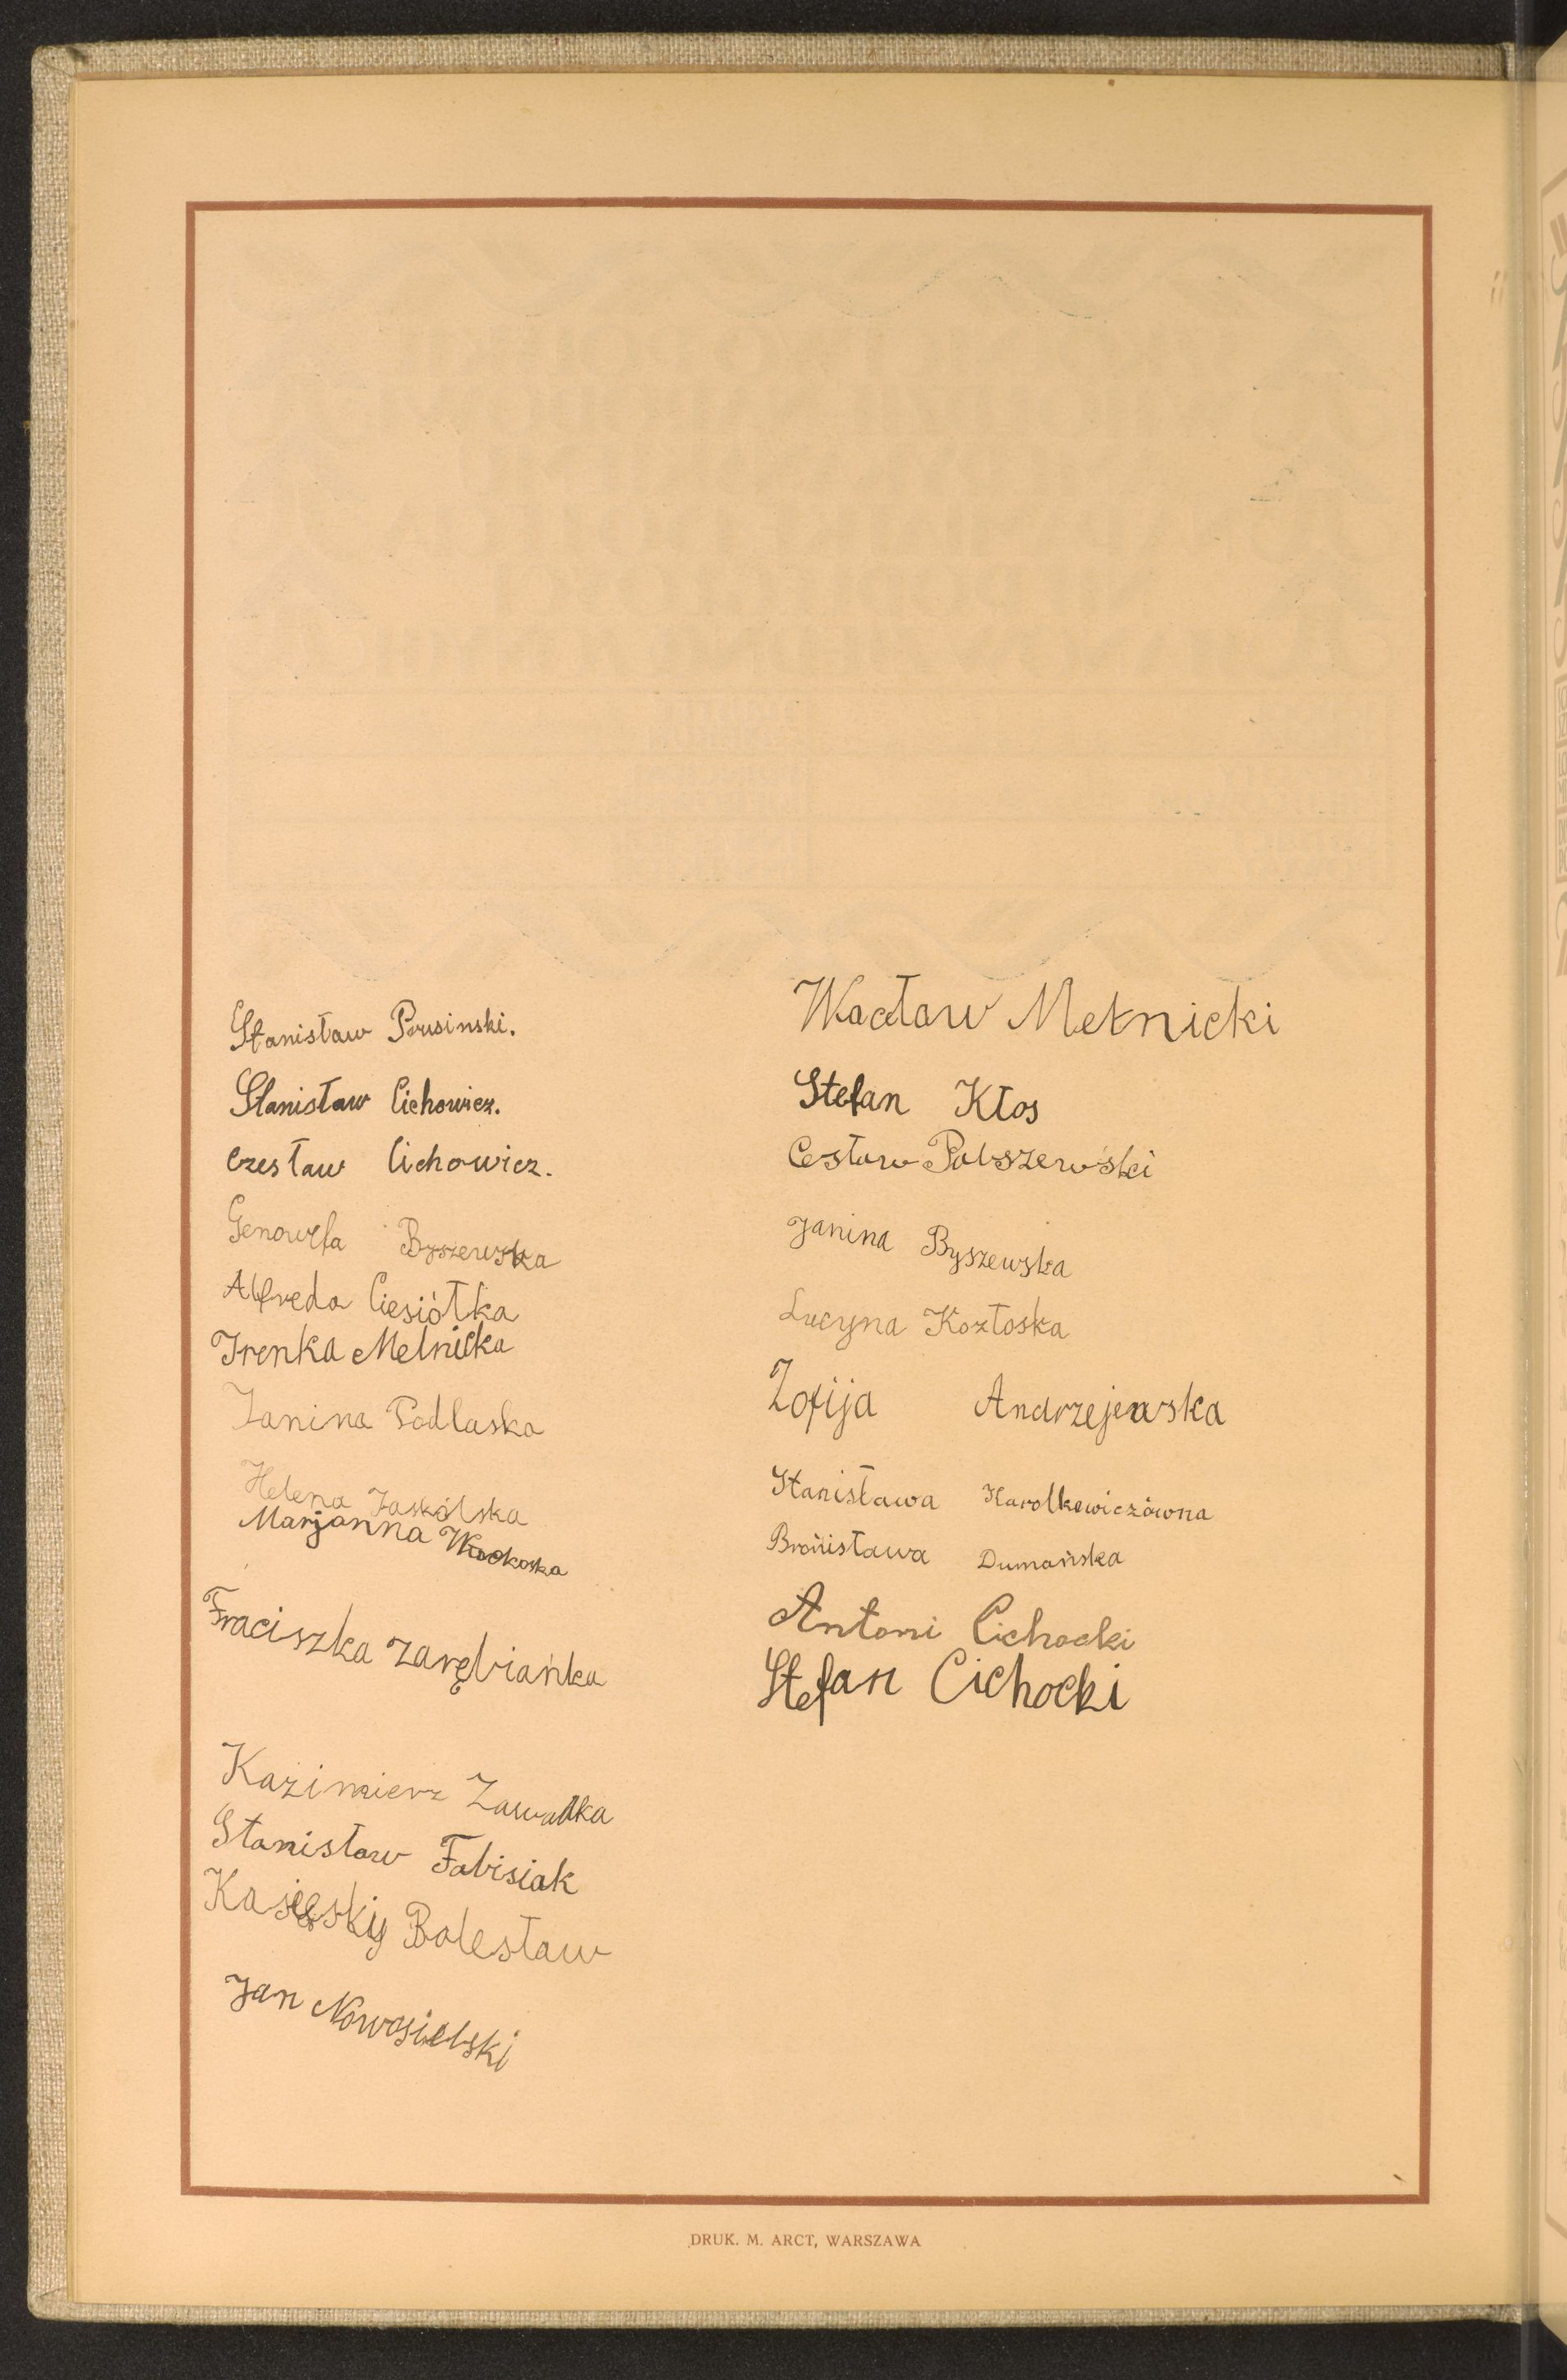 Stanisław Porusinski.
Stanisław Cichowicz.
Czesław Cichowicz.
Genowefa Byszewska
Alfreda Ciesiółka
Irenka Melnicka
Janina Podlaska
Helena Jaskólska
Marjanna
Fraciszka Zarębianka
Kazimierz Zawadka
Stanisław Fabisiak
Bolesław
Jan Nowosielski
Wacław Metnicki
Stefan Kłos
Cesław Pabszewski
Janina Byszewska
Lucyna Kozłoska
Zofija Andrzejewska
Stanisława Karolkewiczówna
Bronisława Dumańska
Antoni Cichocki
Stefan Cichocki
DRUK. M. ARCT, WARSZAWA